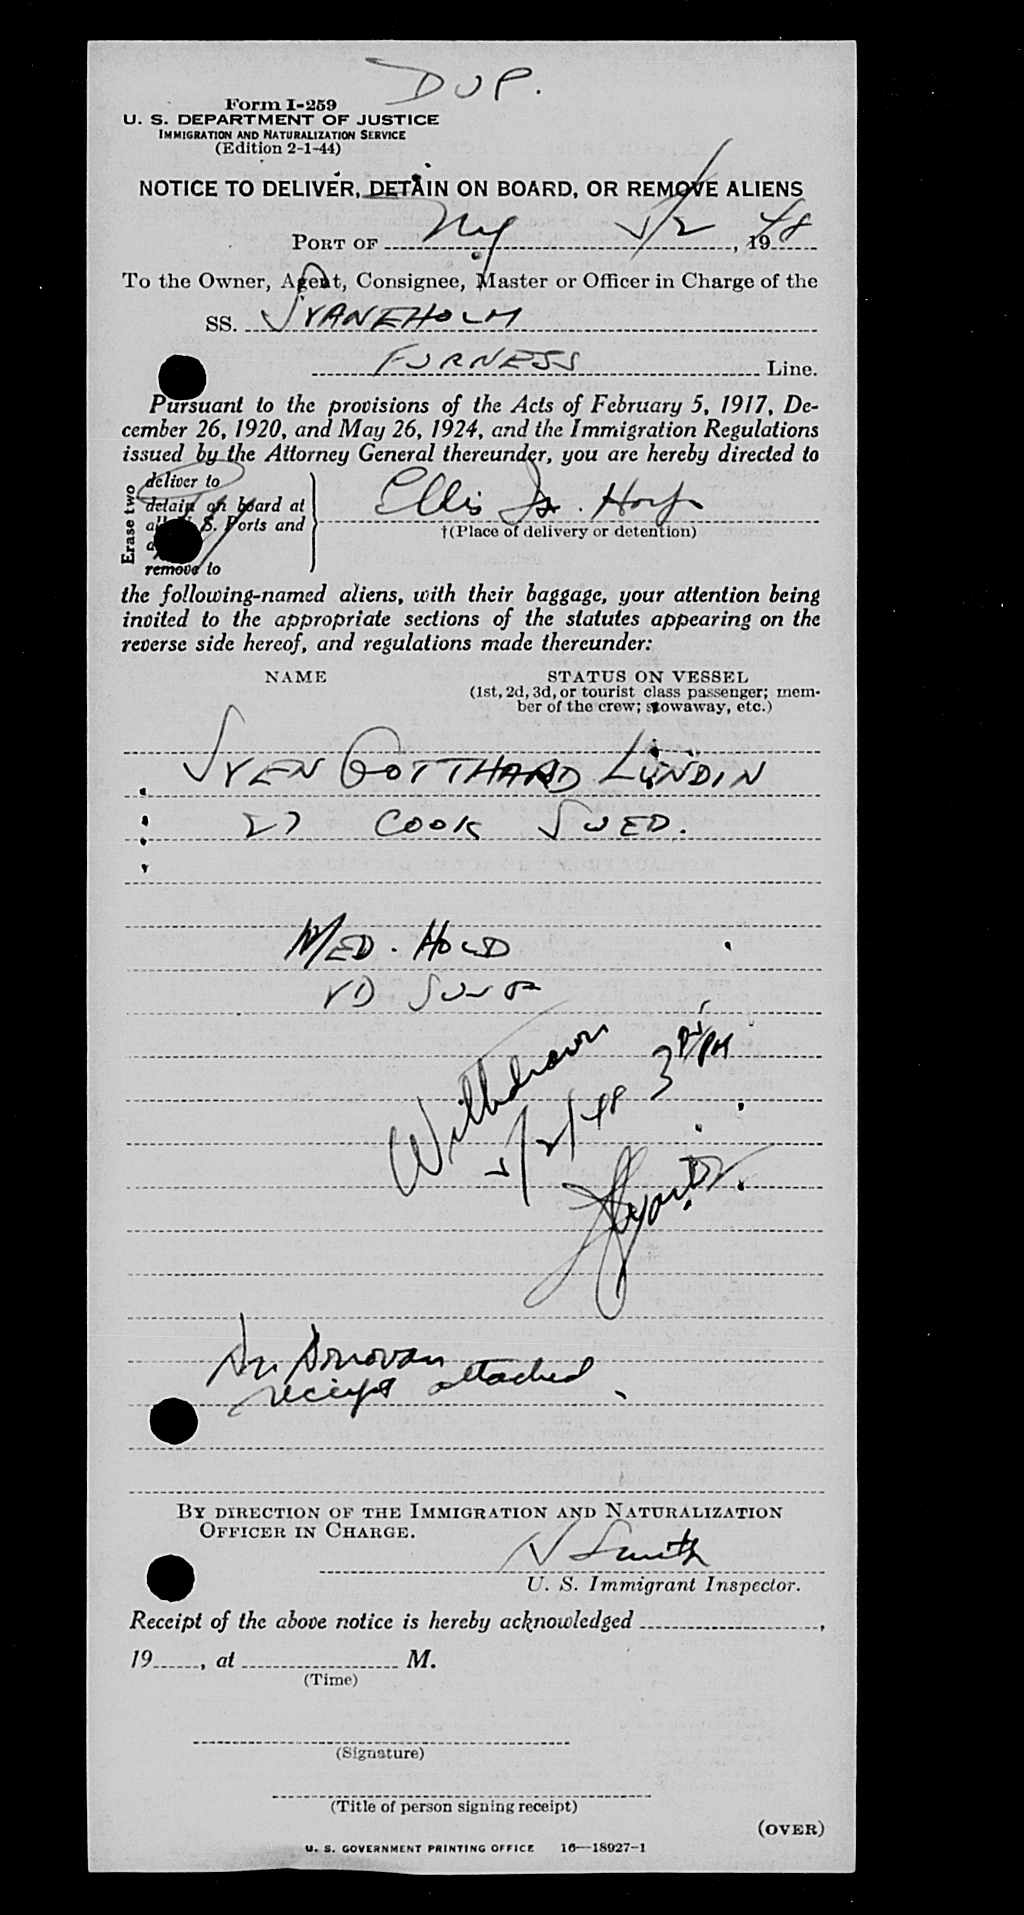 DUP.
Form I-259
U. S. DEPARTMENT OF JUSTICE
IMMIGRATION AND NATURALIZATION SERVICE
(Edition 2-1-44)
NOTICE TO DELIVER, DETAIN ON BOARD, OR REMOVE ALIENS
PORT OF NY 5/2, 1948
To the Owner, Agent, Consignee, Master or Officer in Charge of the
SS. SVANEHOLM
FURNESS Line.
Pursuant to the provisions of the Acts of February 5, 1917, De-
cember 26, 1920, and May 26, 1924, and the Immigration Regulations
issued by the Attorney General thereunder, you are hereby directed to
Erase two
deliver to
detain on board at
all U. S. Ports and
remove to
Ellis Is. Hosp
†(Place of delivery or detention)
the following-named aliens, with their baggage, your attention being
invited to the appropriate sections of the statutes appearing on the
reverse side hereof, and regulations made thereunder:
NAME STATUS ON VESSEL
(1st, 2d, 3d, or tourist class passenger; mem-
ber of the crew; stowaway, etc.)
SVEN GOTTHARD LUNDIN
27 COOK SWED.
MED. HOLD
VD SUSP
Withdrawn
5/2/48 3 PM
Dr. Donovan
receipt attached
BY DIRECTION OF THE IMMIGRATION AND NATURALIZATION
OFFICER IN CHARGE.
N Smith
U. S. Immigrant Inspector.
Receipt of the above notice is hereby acknowledged ,
19 , at M.
(Time)
(Signature)
(Title of person signing receipt)
(OVER)
U. S. GOVERNMENT PRINTING OFFICE 16—18927-1